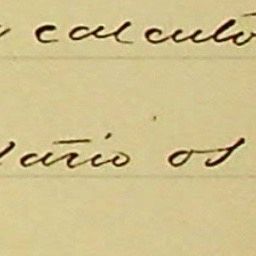 calculo
tario os